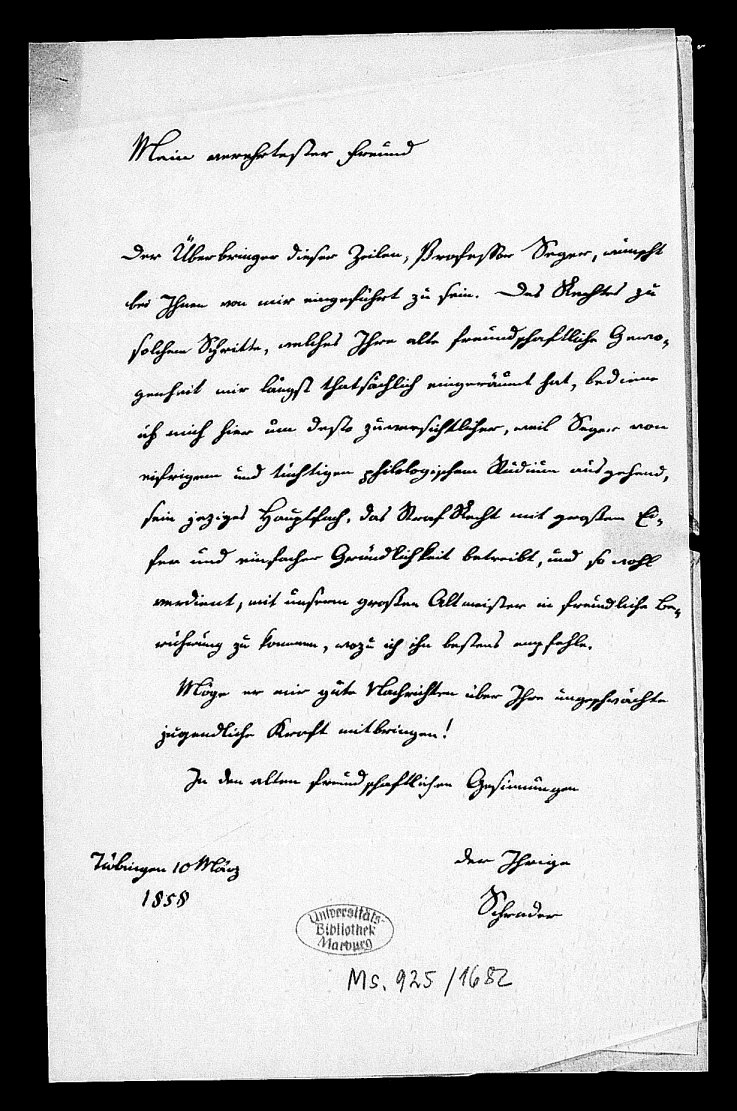 Mein verehrtester Freund
Der Überbringer dieser Zeilen, Professor Seger, wünscht
bei Ihnen von mir eingeführt zu sein. Des Rechtes zu
solchem Schritte, welches Ihre alte freundschaftliche Gewo-
genheit mir längst thatsächlich eingeräumt hat, bediene
ich mich hier um desto zuversichtlicher, weil Seger von
eifrigem und tüchtigen philologischem Studium ausgehend,
sein jeziges Hauptfach, das Straf Recht mit großem Ei-
fer und einfacher Gründlichkeit betreibt, und so wohl
verdient, mit unserm großen Altmeister in freundliche Be-
rührung zu kommen, wozu ich ihn bestens empfehle.
Möge er mir gute Nachrichten über Ihre ungeschwächte
jugendliche Kraft mitbringen!
In den alten freundschaftlichen Gesinnungen
der Ihrige
Schrader
Tübingen 10 März
1858
Universitäts-
Bibliothek
Marburg
Ms. 925/1682